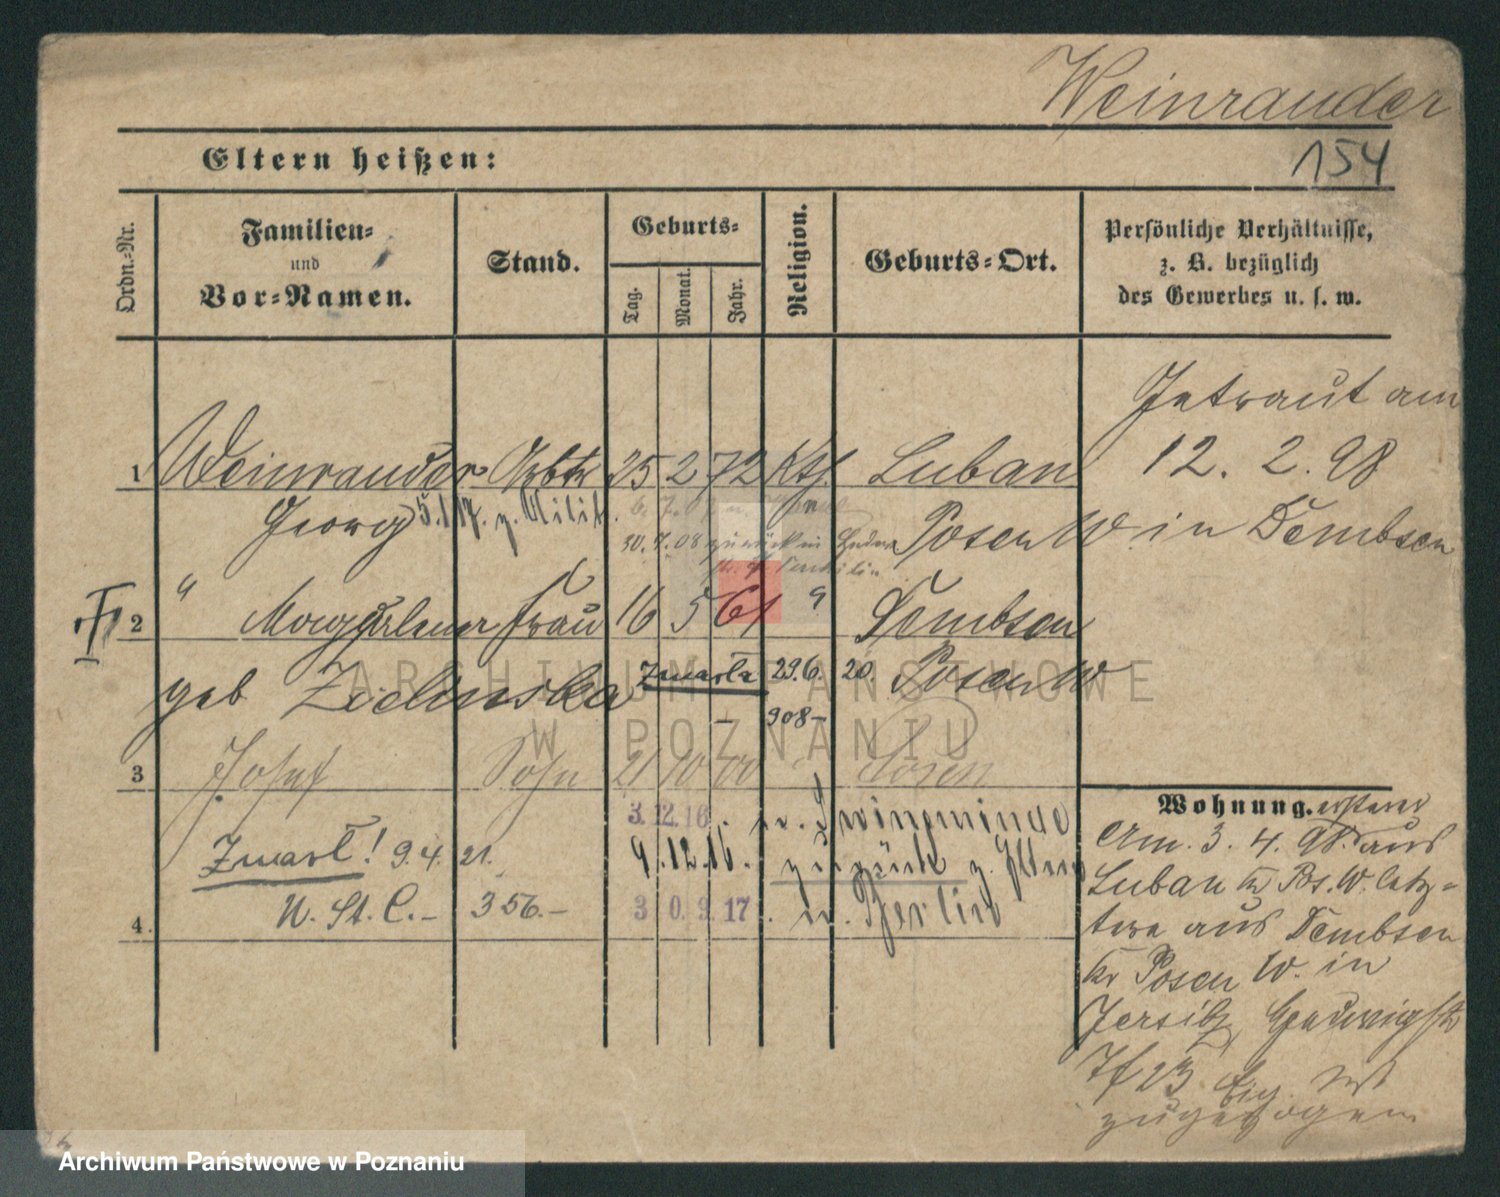 Weinrauder
154
Eltern heißen:
Ordn.-Nr.
Familien-
und
Vor-Namen.
Stand.
Geburts-
Tag.
Monat.
Jahr.
Religion.
Geburts-Ort.
Persönliche Verhältnisse,
z. B. bezüglich
des Gewerbes u. s. w.
Getraut am
1 Weinrauder Arbtr 25 2 72 Kth. Luban 12. 2. 98
Georg 5.1.17. z. Milit. Posen W. in Dembsen
30.7.08 zurück in
II
2 " Magdalena Frau 16 5 61 " Dembsen
geb Zielinska Zmarła 29.6. 20. Posen W
908-
3 Josef Sohn 21 10 00 Posen
3.12.16. n. Swinemünde
Zmarł! 9.4. 21. 9.12.16. zurück z. Eltern
U. St. C.- 356.- 30.9.17. n. Berlin
4.
Wohnung. ersterer
Am. 3. 4. 98. aus
Luban Kr Pos. W. letz-
tere aus Dembsen
Kr Posen W. in
Jersitz, Hedwigstr
zugezogen
ARCHIWUM PAŃSTWOWE
W POZNANIU
Archiwum Państwowe w Poznaniu